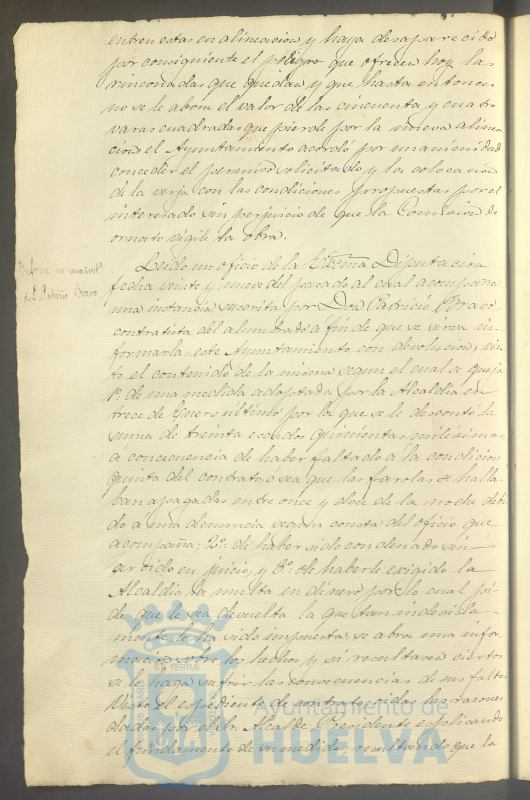 entren estas en alineacion y haya desaparecido
por consiguiente el peligro que ofrecen hoy las
rinconadas que quedan y que hasta entonces
no se le abone el valor de las cincuenta y cuatro
varas cuadradas que pierde por la nueva alinea
cion el Ayuntamiento acordó por unanimidad
conceder el permiso solicitado y la colocacion
de la verja con las condiciones propuestas por el
interesado sin perjuicio de que la Comision de
ornato vigile la obra.
Informe en una inst.ª
de D. Patricio Bravo
Leido un oficio de la Excma Diputacion
fecha veinte y nueve del pasado al cual acompaña
una instancia suscrita por Don Patricio Bravo,
contratista del alumbrado á fin de que se sirva in
formarla este Ayuntamiento con devolucion, vis
to el contenido de la misma segun el cual se queja
1º de una medida adoptada por la Alcaldia en
trece de Enero último por la que se le descontó la
suma de treinta escudos quinientas milésimas
a consecuencia de haber faltado á la condicion
quinta del contrato, o sea que las farolas se halla
ban apagadas entre once y doce de la noche debi
do á una denuncia segun consta del oficio que
acompaña; 2º de haber sido condenado sin
ser oido en juicio, y 3º de haberle exigido la
Alcaldia la multa en dinero por lo cual pi
de que le sea devuelta la que tan indevida
mente le ha sido impuesta, se abra una infor
macion sobre los hechos y si resultasen ciertos
se le haga sufrir las consecuencias de sus faltas
Visto el espediente de contrato, oidas las razones
dadas por el Sr. Alcalde Presidente esplicando
el fundamento de su medida, resultando que la
Ayuntamiento de
HUELVA